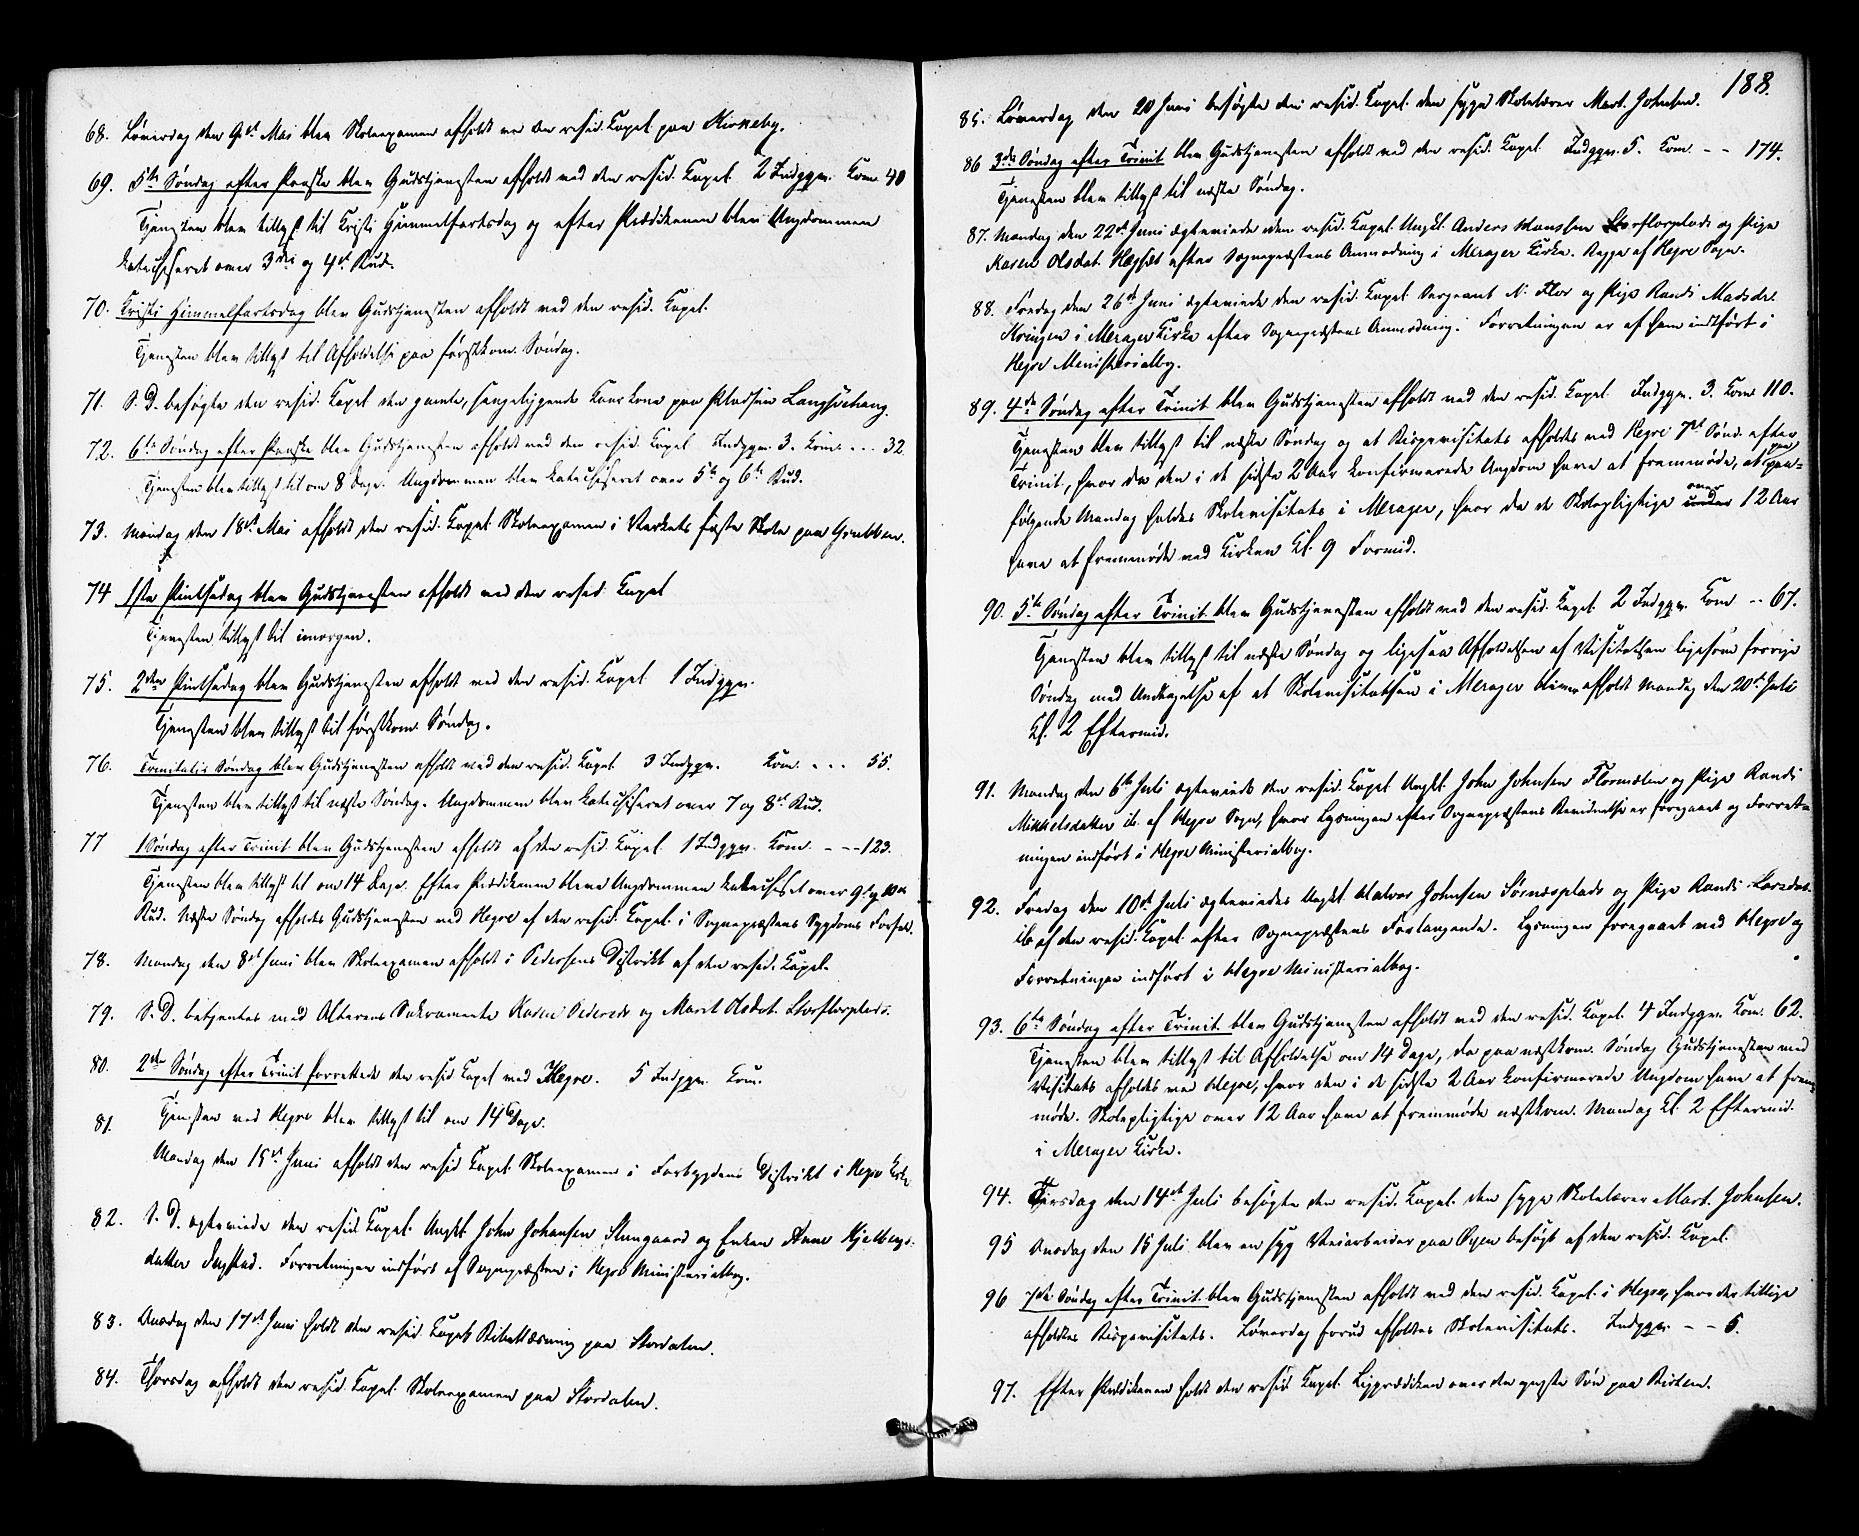 68. Løverdag den 9de Mai blev Skoleexamen afholdt av den resid. Capel. paa Kirkeby.
69. 5te Søndag efter Paaske blev Gudstjenesten afholdt ved den resid. Capel. 2 Indggn. Kom. 40
Tjenesten blev tillyst til Kristi Himmelfartsdag og efter Prædikenen blev Ungdommen
katechiseret over 3die og 4de Bud.
70. Kristi Himmelfartsdag blev Gudstjenesten afholdt ved den resid. Capel.
Tjenesten blev tillyst til Afholdelse paa førstkom. Søndag.
71. S. D. besøgte den resid. Capel den gamle, sengeliggende Kaarkone paa Pladsen
72. 6te Søndag efter Paaske blev Gudstjenesten afholdt ved den resid. Capel Indggn. 3. Kom. - - - 32
Tjenesten blev tillyst til om 8 Dage. Ungdommen blev katechiseret over 5te og 6te Bud.
73. Mandag den 18de Mai afholdt den resid. Capel. Skoleexamen i Værkets faste Skole paa Grubben.
74 1ste Pintsedag blev Gudstjenesten afholdt ved den resid. Capel
Tjenesten tillyst til imorgen.
75. 2den Pintsedag blev Gudstjenesten afholdt ved den resid. Capel 1 Indggn.
Tjenesten blev tillyst til førstkom. Søndag.
76. Trinitatis Søndag blev Gudstjenesten afholdt ved den resid. Capel. 3 Indggn. Kom. - - - 55.
Tjenesten blev tillyst til næste Søndag. Ungdommen blev katechiseret over 7 og 8de Bud.
77 1 Søndag efter Trinit blev Gudstjenesten afholdt af den resid. Capel. 1 Indggn. Kom. - - - 123.
Tjenesten blev tillyst til om 14 Dage. Efter Prædikenen blev Ungdommen katechiset over 9. og 10de
Bud. Næste Søndag afholdes Gudstjenesten ved Hegre af den resid. Capel. i Sognepræstens Sygdoms Forfald.
78. Mandag den 8de Juni blev Skoleexamen afholdt i Pedersens Distrikt af den resid. Capel.
79. S. D. betjentes med Alterens Sakramente Karen Pedersdr og Marit Olsdat. Storflorplads.
80. 2den Søndag efter Trinit forrettede den resid Capel ved Hegre. 5 Indggn. Kom.
81. Tjenesten ved Hegre blev tillyst til om 14 Dage.
Mandag den 15de Juni afholdt den resid Capel. Skoleexamen i Forbygdens Distrikt i Hegre Kirke
82. S. D. ægteviede den resid. Capel. Ungkl. John Johansen Stungaard og Enken Anne Kjelbergs-
datter Ingstad. Forretningen indført af Sognepræsten i Hegre Ministerialbog.
83. Onsdag den 17de Juni holdt den resid Capel. Bibellæsning paa Stordalen.
84. Thorsdag afholdt den resid. Capel. Skoleexamen paa Stordalen.
188.
85. Løverdag den 20 Juni besøgte den resid. Capel. den syge Skolelærer Mart. Johnsen.
86 3die Søndag efter Trinit blev Gudstjenesten afholdt ved den resid. Capel Indggn. 5. Kom. - - 174.
Tjenesten blev tillyst til næste Søndag.
87. Mandag den 22de Juni ægteviede den resid. Capel. Ungkl. Anders Monssen Storflorplads og Pige
Karen Olsdat. efter Sognepræstens Anmodning i Merager Kirke. Begge af Hegre Sogn.
88. Fredag den 26de Juni ægteviede den resid. Capel Sergeant N. Flor og Pige Randi Madsdr.
Kringen i Merager Kirke efter Sognepræstens Anmodning. Forretningen er af ham indført i
Hegre Ministerialbog.
89. 4de Søndag efter Trinit blev Gudstjenesten afholdt ved den resid. Capel Indggn. 3. Kom. 110.
Tjenesten blev tillyst til næste Søndag og at Bispevisitats afholdes ved Hegre 7de Sønd. efter
Trinit, hvor da den i de sidste 2 Aar konfirmerede Ungdom have at fremmøde, at paa-
følgende Mandag holdes Skolevisitats i Merager, hvor da de Skolepligtige under over 12 Aar
have at fremmøde ved Kirken Kl. 9 Formid.
90. 5te Søndag efter Trinit. blev Gudstjenesten afholdt ved den resid. Capel. 2 Indggn. Kom - - 67.
Tjenesten blev tillyst til næste Søndag og ligesaa Afholdelsen af Visitatsen ligesom forrige
Søndag med Undtagelse af at Skolevisitatsen i Merager bliver afholdt Mandag den 20de Juli
Kl. 2 Eftermid.
91. Mandag den 6te Juli ægteviede den resid. Capel Ungkl. John Johnsen Flormælen og Pige Randi
Mikkelsdatter ib. af Hegre Sogn, hvor Lysningen efter Sognepræstens er foregaaet og Forret-
ningen indført i Hegre Ministerialbog.
92. Fredag den 10de Juli ægteviedes Ungkl. Halvor Johnsen Sørnæsplads og Pige Randi Larsdat.
ib. af den resid. Capel. efter Sognepræstens Forlangende. Lysningen foregaaet ved Hegre og
Forretningen indført i Hegre Ministerialbog.
93. 6te Søndag efter Trinit. blev Gudstjenesten afholdt ved den resid. Capel. 4 Indggn. Kom. 62.
Tjenesten blev tillyst til Afholdelse om 14 Dage, da paa næstkom. Søndag Gudstjenesten med
Visitats afholdes ved Hegre, hvor den i de sidste 2 Aar konfirmerede Ungdom have at frem-
møde. Skolepligtige over 12 Aar have at fremmøde næstkom. Mandag Kl. 2 Eftermid.
i Merager Kirke.
94. Tirsdag den 14de Juli besøgte den resid. Capel. den syge Skolelærer Mart. Johnsen.
95 Onsdag den 15 Juli blev en syg Veiarbeider paa Øyen besøgt af den resid. Capel.
96 7de Søndag efter Trinit. blev Gudstjenesten afholdt ved den resid. Capel. i Hegre, hvor der tillige
afholdtes Bispevisitats. Løverdag forud afholdtes Skolevisitats. Indggn. - - 5.
97. Efter Prædikenen holdt den resid Capel Ligprædiken over den yngste Søn paa